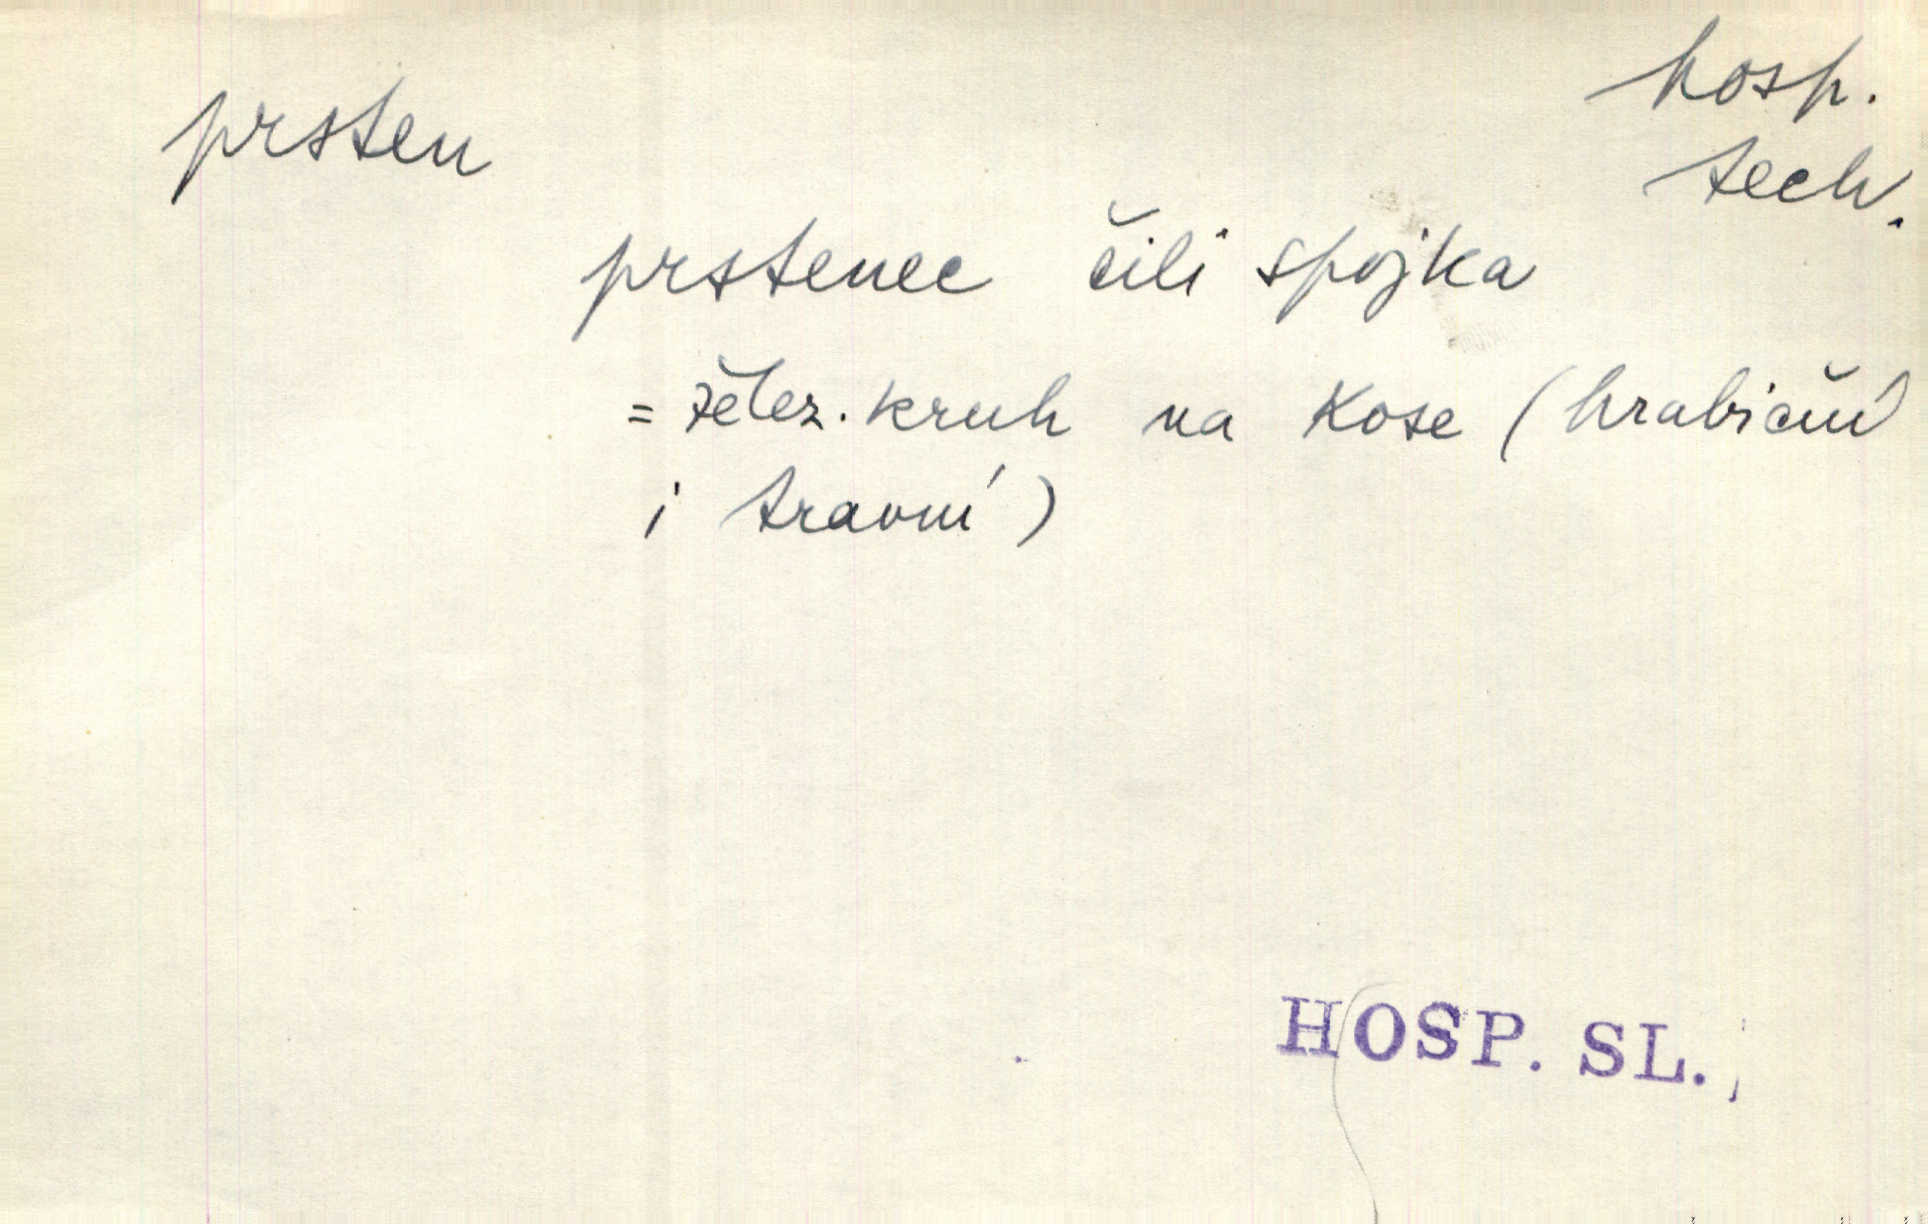 prsten
hosp.
tech.
prstenec čili spojka
= želez. kruh na kose (hrabiční
i travní)
HOSP. SL.